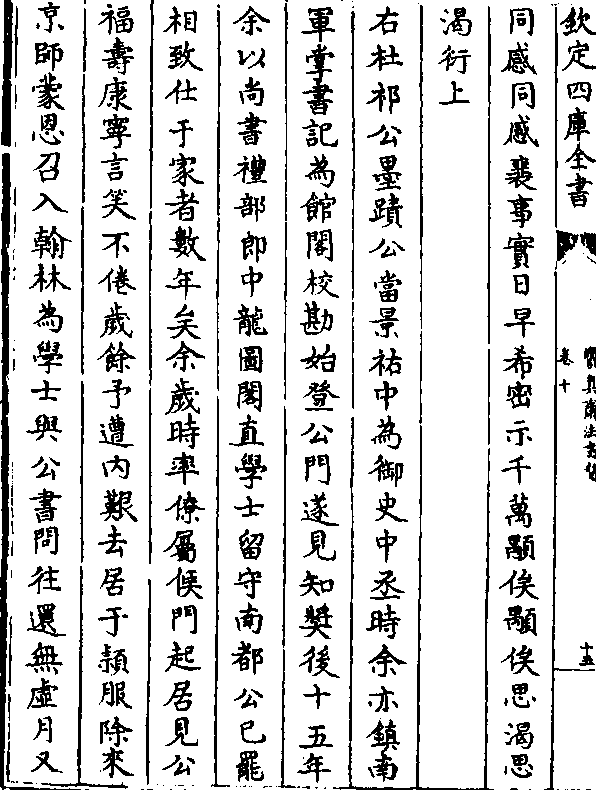 欽定四庫全書
卷十
十五
同感同感裴事實日早希密示千萬顒俟顒俟思渴思
渴衍上
右杜祁公墨蹟公當景祐中為御史中丞時余亦鎮南
軍掌書記為館閣校勘始登公門遂見知奬後十五年
余以尚書禮部郎中龍圖閣直學士留守南都公已罷
相致仕于家者數年矣余歲時率僚屬候門起居見公
福壽康寧言笑不倦歲餘予遭内艱去居于潁服除來
京師蒙恩召入翰林為學士與公書問往還無虛月又